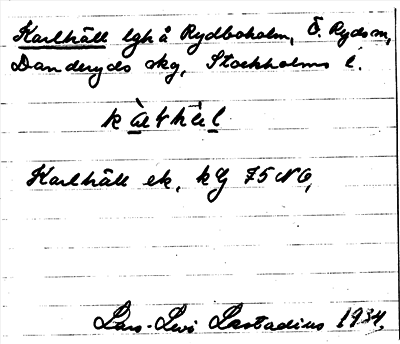 Karlhäll lgh å Rydboholm, Ö. Ryds sn,
Danderyds skg, Stockholms l.
Karlhäll ek, kbl 75 NO,
Lars-Levi Læstadius 1934.